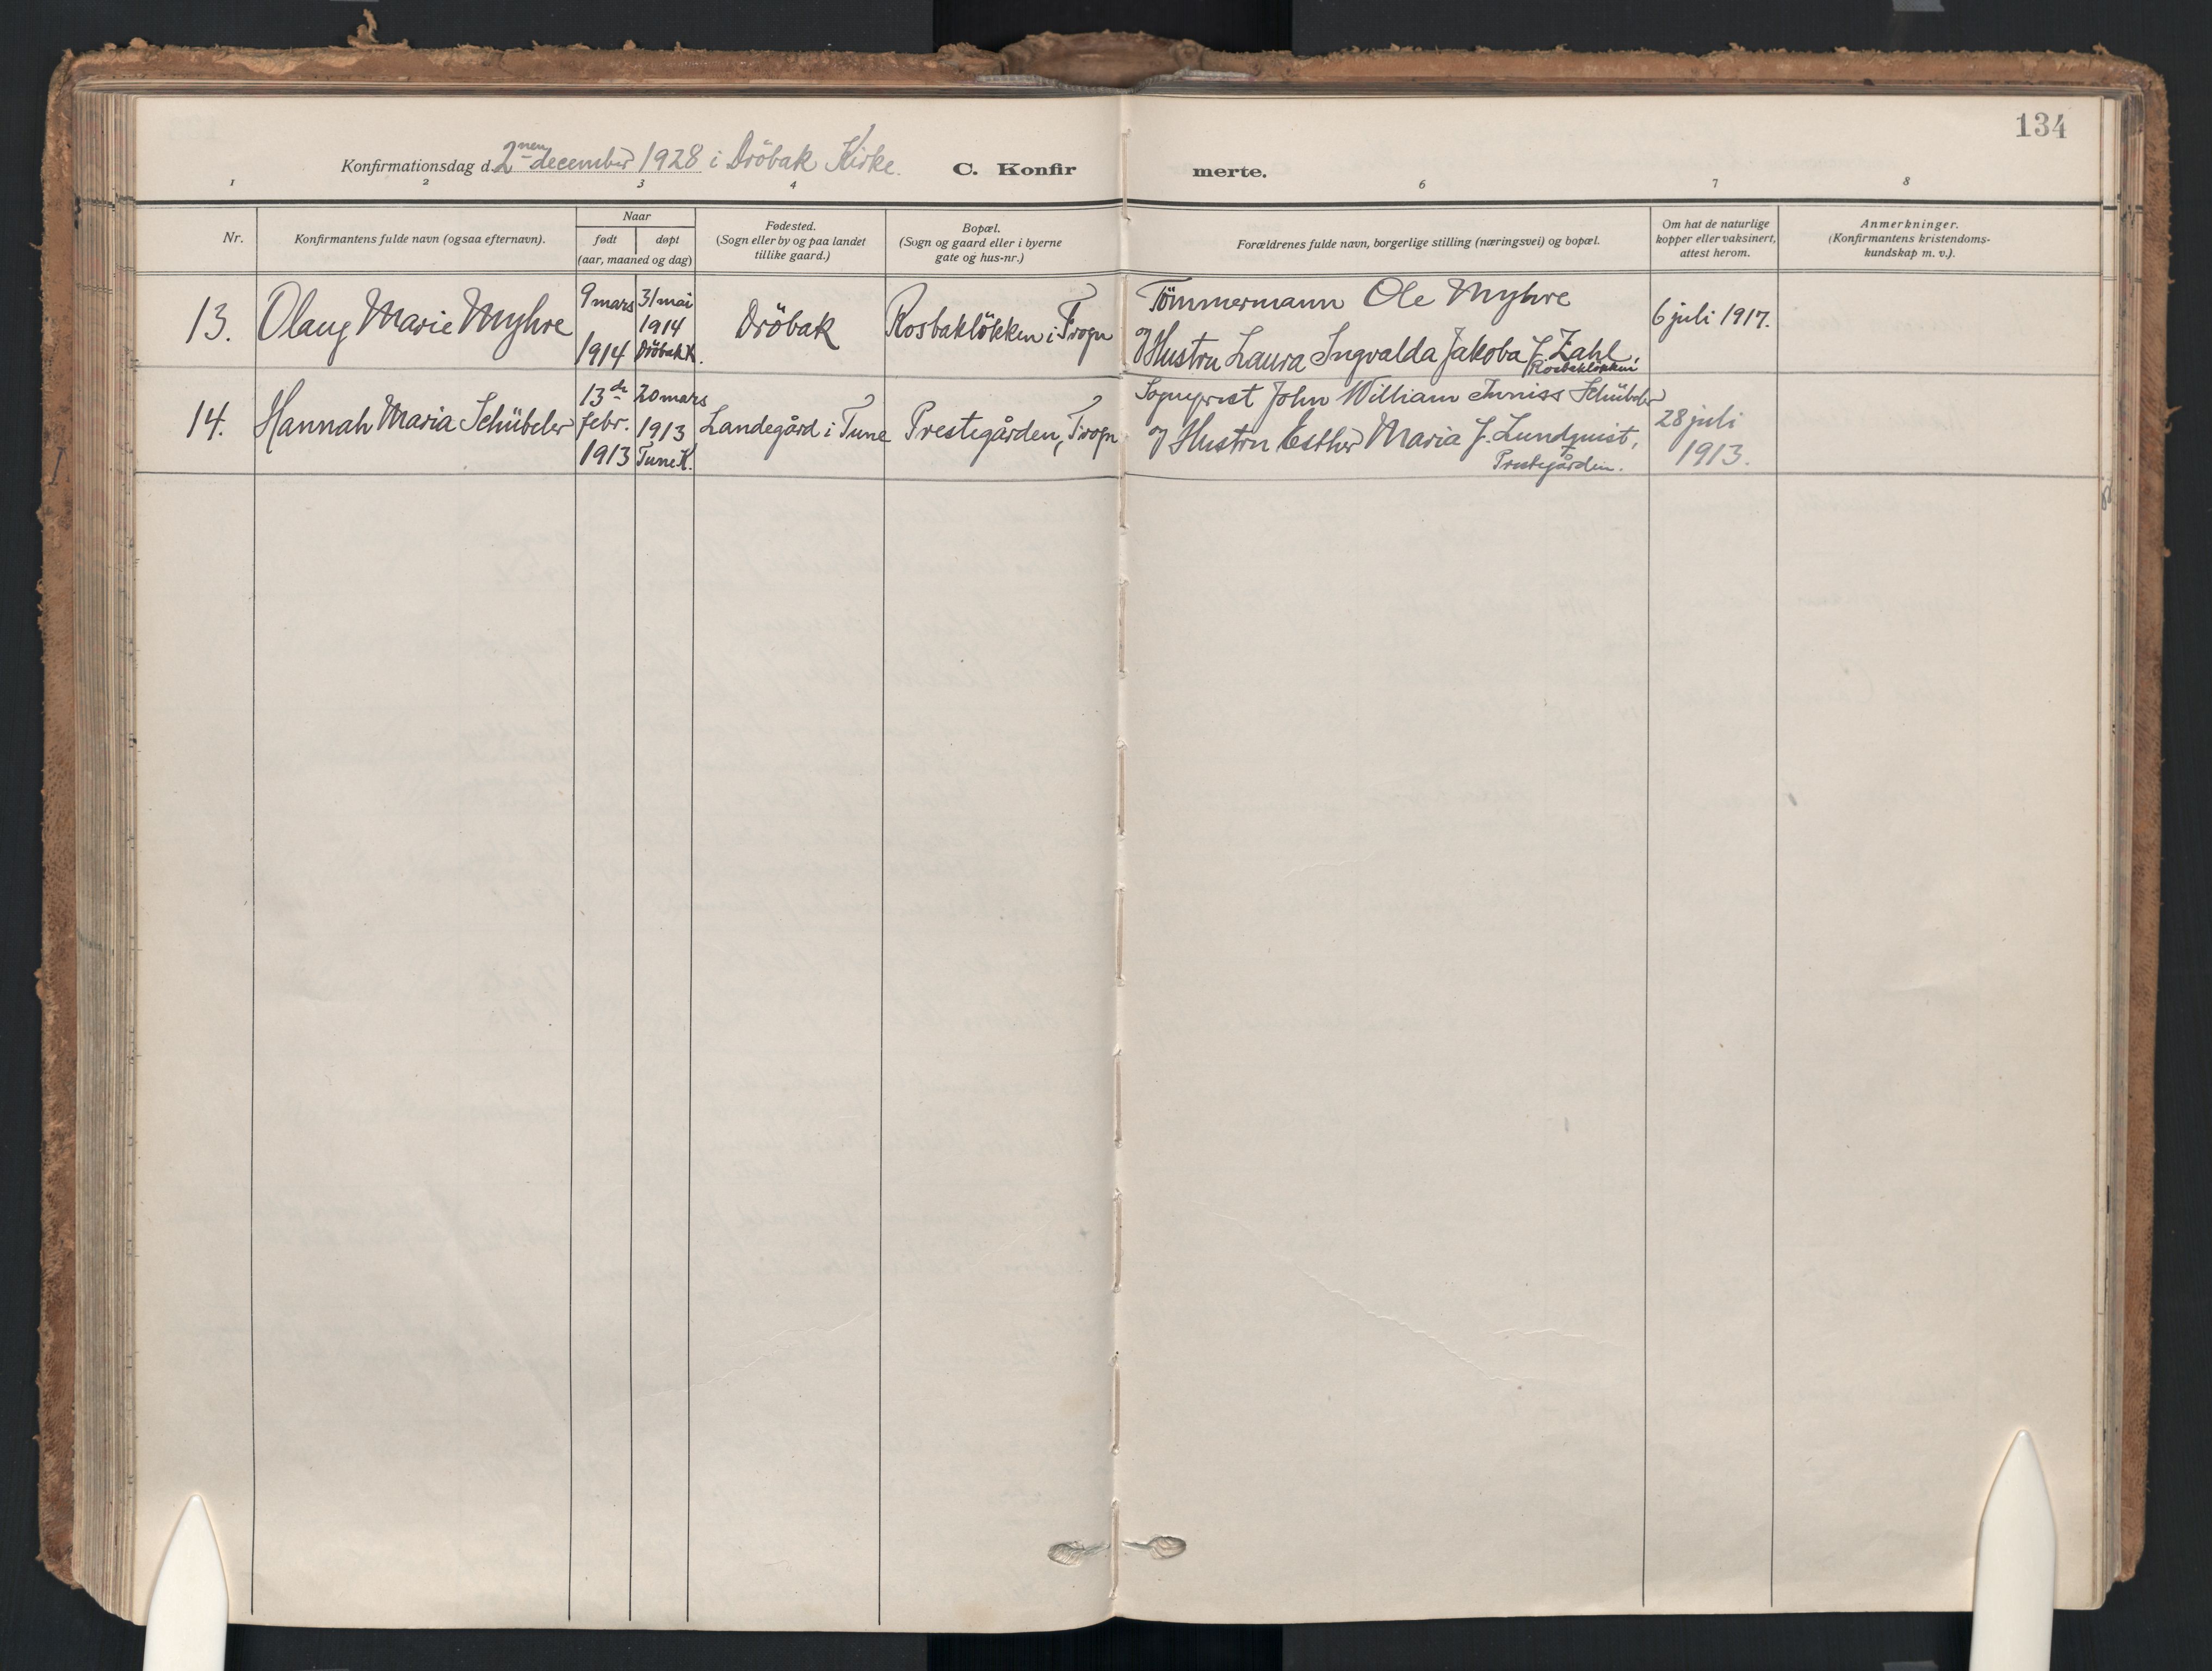 134
Konfirmationsdag d. 2nen december 1928 i Dröbak Kirke.
C. Konfirmerte.
1 2 3 4 6 7 8
Nr.
Konfirmantens fulde navn (ogsaa efternavn).
Naar
født
døpt
(aar, maaned og dag)
Fødested.
(Sogn eller by og paa landet
tillike gaard.)
Bopæl.
(Sogn og gaard eller i byerne
gate og hus-nr.)
Forældrenes fulde navn, borgerlige stilling (næringsvei) og bopæl.
Om hat de naturlige
kopper eller vaksinert,
attest herom.
Anmerkninger.
(Konfirmantens kristendoms-
kundskap m. v.).
13.
Olaug Marie Myhre
9 mars
1914
31 mai
1914
Dröbak K.
Dröbak
Rosbakløkken i Frogn
Tömmermann Ole Myhre
og Hustru Laura Ingvalda Jakoba f. Zahl.
Rosbakløkken
6 juli 1917.
14.
Hannah Maria Schübeler
13de
febr.
1913
20 mars
1913
Tune K.
Landegård i Tune
Prestegården, Frogn
Sogneprest John William Inniss Schübeler
og Hustru Esther Maria f. Lundquist,
Prestegården.
28 juli
1913.